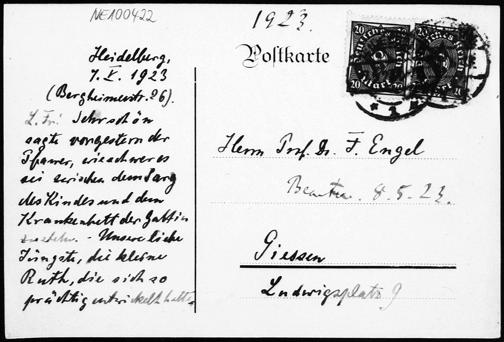 NE100422
1923.
Postkarte
Heidelberg,
7. V. 1923
(Bergheimerstr. 26).
L. Fr! Sehr schön
sagte vorgestern der
Pfarrer, wie schwer es
sei zwischen dem Sarg
des Kindes und dem
Krankenbett der Gattin
stehn. - Unsere liebe
Jüngste, die kleine
Ruth, die sich so
prächtig entwickelt hatte,
Herrn Prof. Dr. F. Engel
8.5.23.
Giessen
Ludwigsplatz 9
20 20
20 20